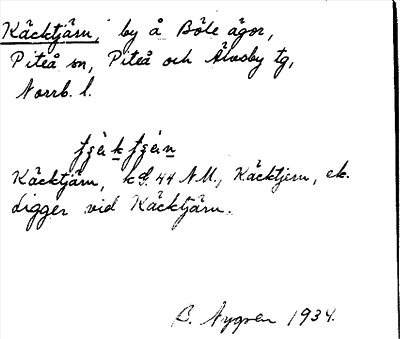 Käcktjärn, by å Böle ägor,
Piteå sn, Piteå och Älvsby tg,
Norrb. l.
Käcktjärn, kbl. 44 NU., Käcktjern, ek.
Ligger vid Käcktjärn.
B. Nygren 1934.